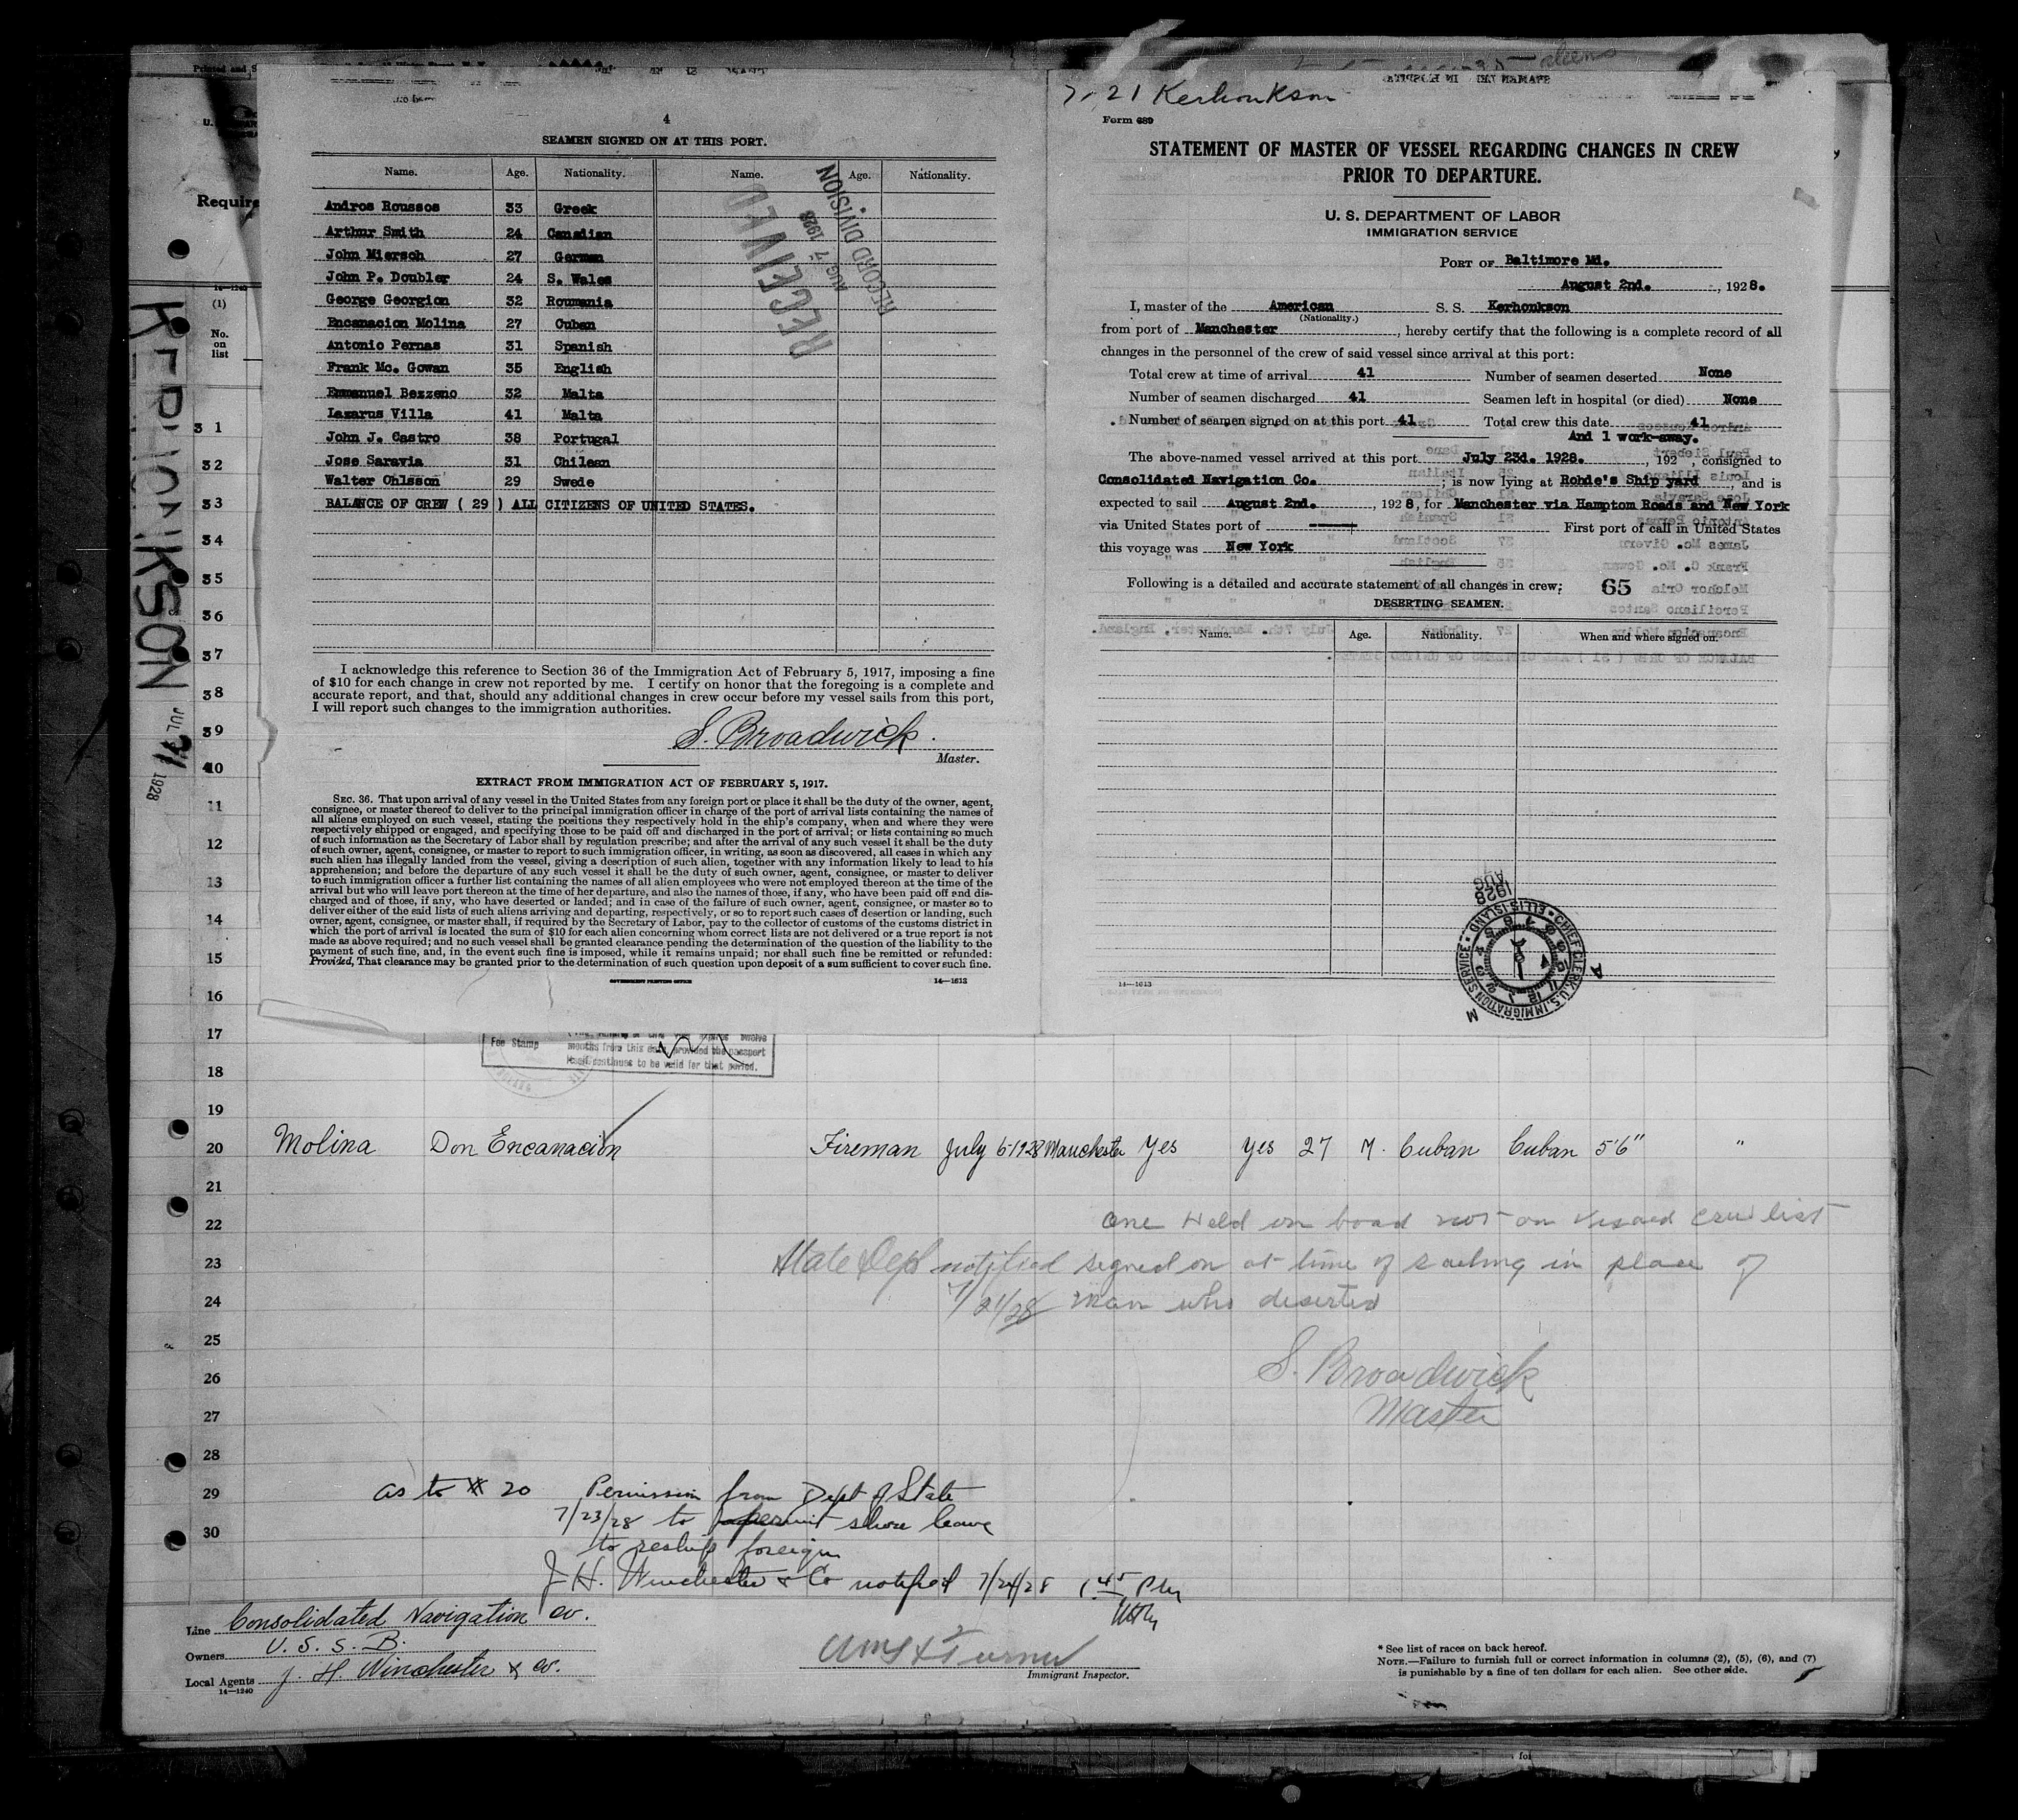 4
SEAMEN SIGNED ON AT THIS PORT.
Name. Age. Nationality. Name. Age. Nationality.
Andros Roussos 33 Greek
Arthur Smith 24 Canadian
John Miersch 27 German
John P. Doubler 24 S. Wales
George Georgion 32 Roumania
Encanacion Molina 27 Cuban
Antonio Pernas 31 Spanish
Frank Mc. Gowan 35 English
Emmanuel Bezzeno 32 Malta
Lazarus Villa 41 Malta
John J. Castro 38 Portugal
Jose Saravia 31 Chilean
Walter Ohlsson 29 Swede
BALANCE OF CREW ( 29 ) ALL CITIZENS OF UNITED STATES.
RECEIVED
AUG 7 1928
RECORD DIVISION
I acknowledge this reference to Section 36 of the Immigration Act of February 5, 1917, imposing a fine
of $10 for each change in crew not reported by me. I certify on honor that the foregoing is a complete and
accurate report, and that, should any additional changes in crew occur before my vessel sails from this port,
I will report such changes to the immigration authorities.
S. Broadwick.
Master.
EXTRACT FROM IMMIGRATION ACT OF FEBRUARY 5, 1917.
SEC. 36. That upon arrival of any vessel in the United States from any foreign port or place it shall be the duty of the owner, agent,
consignee, or master thereof to deliver to the principal immigration officer in charge of the port of arrival lists containing the names of
all aliens employed on such vessel, stating the positions they respectively hold in the ship's company, when and where they were
respectively shipped or engaged, and specifying those to be paid off and discharged in the port of arrival; or lists containing so much
of such information as the Secretary of Labor shall by regulation prescribe; and after the arrival of any such vessel it shall be the duty
of such owner, agent, consignee, or master to report to such immigration officer, in writing, as soon as discovered, all cases in which any
such alien has illegally landed from the vessel, giving a description of such alien, together with any information likely to lead to his
apprehension; and before the departure of any such vessel it shall be the duty of such owner, agent, consignee, or master to deliver
to such immigration officer a further list containing the names of all alien employees who were not employed thereon at the time of the
arrival but who will leave port thereon at the time of her departure, and also the names of those, if any, who have been paid off and dis-
charged and of those, if any, who have deserted or landed; and in case of the failure of such owner, agent, consignee, or master so to
deliver either of the said lists of such aliens arriving and departing, respectively, or so to report such cases of desertion or landing, such
owner, agent, consignee, or master shall, if required by the Secretary of Labor, pay to the collector of customs of the customs district in
which the port of arrival is located the sum of $10 for each alien concerning whom correct lists are not delivered or a true report is not
made as above required; and no such vessel shall be granted clearance pending the determination of the question of the liability to the
payment of such fine, and, in the event such fine is imposed, while it remains unpaid; nor shall such fine be remitted or refunded:
Provided, That clearance may be granted prior to the determination of such question upon deposit of a sum sufficient to cover such fine.
GOVERNMENT PRINTING OFFICE 14—1613
21 Kerhonkson
Form 689
STATEMENT OF MASTER OF VESSEL REGARDING CHANGES IN CREW
PRIOR TO DEPARTURE.
U. S. DEPARTMENT OF LABOR
IMMIGRATION SERVICE
PORT OF Baltimore Md.
August 2nd., 1928.
I, master of the American S. S. Kerhonkson
(Nationality.)
from port of Manchester, hereby certify that the following is a complete record of all
changes in the personnel of the crew of said vessel since arrival at this port:
Total crew at time of arrival 41 Number of seamen deserted None
Number of seamen discharged 41 Seamen left in hospital (or died) None
Number of seamen signed on at this port 41 Total crew this date 41
And 1 work-away.
The above-named vessel arrived at this port July 23d. 1928., 192 , consigned to
Consolidated Navigation Co. ; is now lying at Robde's Ship yard, and is
expected to sail August 2nd., 1928, for Manchester via Hamptom Roads and New York
via United States port of First port of call in United States
this voyage was New York
Following is a detailed and accurate statement of all changes in crew: 65
DESERTING SEAMEN.
Name. Age. Nationality. When and where signed on.
1928 AUG
CHIEF CLERK, U.S. IMMIGRATION SERVICE • ELLIS ISLAND •
14—1613
Require
(1)
No.
on
list
KERHONKSON JUL 21 1928
31
32
33
34
35
36
37
38
39
40
11
12
13
14
15
16
17
Fee Stamp
months from this date, provided the passport
itself continues to be valid for that period.
18
19
20 Molina Don Encanacion Fireman July 6-1928 Manchester Yes Yes 27 M. Cuban Cuban 5'6" "
21
22 one Held on board not on visaed crew list
23 State Dept notified signed on at time of sailing in place of
24 7/21/28 man who deserted
25
S. Broadwick
26
Master
27
28
29 as to # 20 Permission from Dept of State
7/23/28 to permit shore leave
30
to reship foreign
J. H. Winchester & Co notified 7/24/28 1 45 PM
Line Consolidated Navigation Co.
Owners U. S. S. B.
Local Agents J. H. Winchester & Co.
14—1240
Turner
Immigrant Inspector.
* See list of races on back hereof.
NOTE.—Failure to furnish full or correct information in columns (2), (5), (6), and (7)
is punishable by a fine of ten dollars for each alien. See other side.